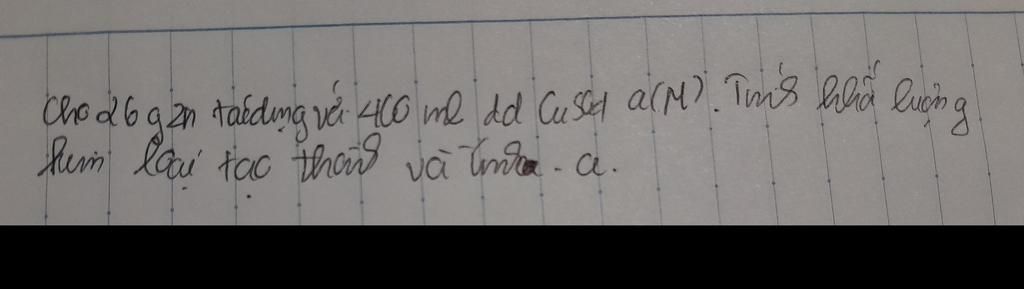 Cho 26 g Zn tác dụng với 400 ml dd CuSO4 a(M). Tính khối lượng
kim loại tạo thành và tính a.